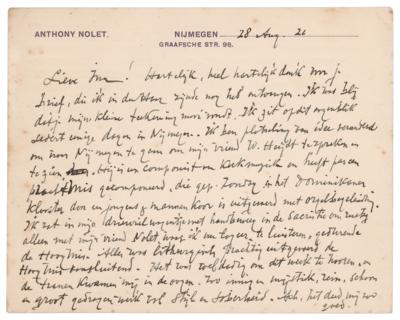 ANTHONY NOLET. NIJMEGEN 28 Aug. 21
GRAAFSCHE STR. 98.
Lieve Ina! Hartelijk, heel hartelijk dank voor je
brief, die ik in den Haag zijnde nog heb ontvangen. Ik was blij
dat je mijn kleine teekening mooi vondt. Ik zit op dit oogenblik
sedert eenige dagen in Nijmegen. Ik ben plotseling van idee veranderd
om naar Nijmegen te gaan om mijn vriend W. te spreken en
te zien. Hij is een componist van Kerkmuziek en heeft pas een
gecomponeerd, die gep. Zondag in het Dominikaner
Klooster door een jongens en mannenkoor is uitgevoerd met orgelbegeleiding.
Ik zat in mijn driewielwagentje met handbeweg. in de Sacristie en rustig
alleen met mijn vriend Nolet waar ik logeer te luisteren, gedurende
de Hoogmis. Alles was liturgisch prachtig uitgevoerd de
Hoogmis aansluitend. Het was weldadig om dit werk te hooren, en
de tranen kwamen mij in de oogen. Zoo innig en mystiek, rein, schoon
en groot gedragen werk vol Stijl en Soberheid. Ach, het deed mij zoo
goed.